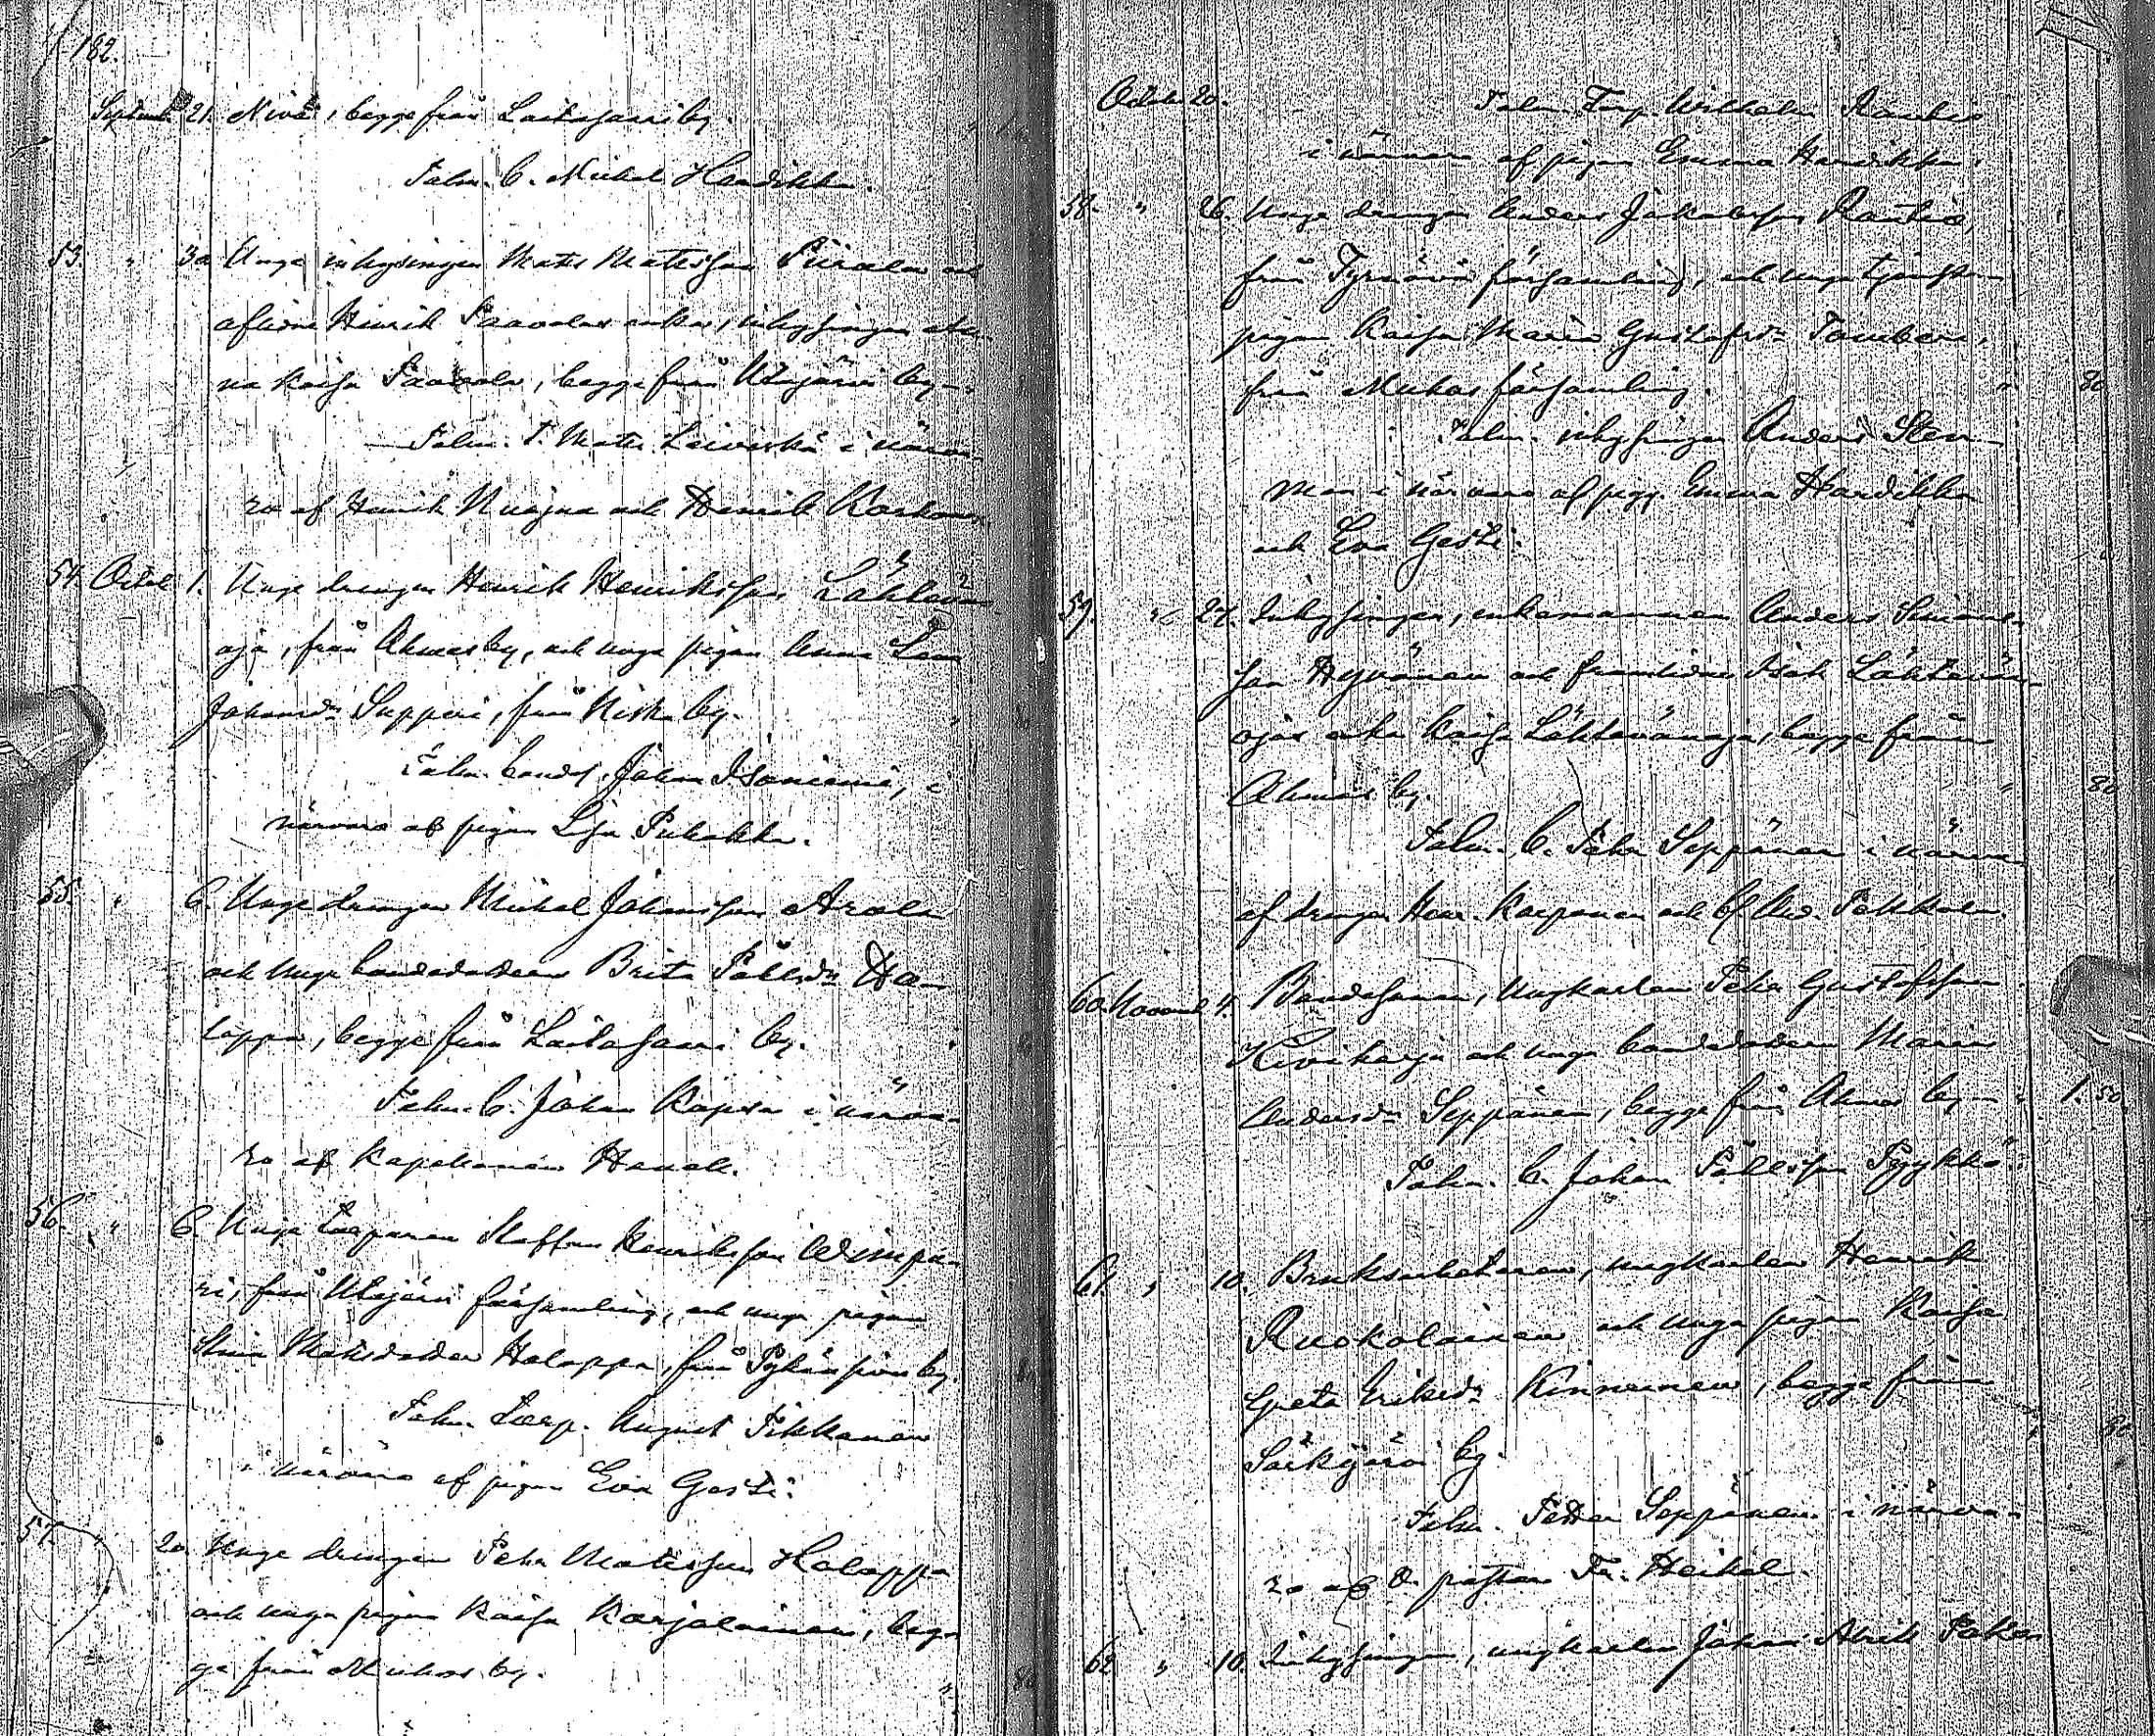 182.
Septemb 21. Nivä, begge från Laitasaari by.
Talm. B. Mickel Hardikka.
53. " 30 Unge inhysingen Mats Matsson Piirala och
aflidne Henrik Paavolas enka, inhysingen An-
na Kaisa Paavola, begge från Utajärvi by.
Talm. T. Mats Leiviskä i närva-
ro af Henrik Nuojua och Henrik Korhonen.
54. Octob 1. Unge drengen Henrik Henriksson Lähtevän-
oja, från Ahmas by, och unga pigan Anna Lisa
Johansdr Supperi, från Niska by. "
Talm. bonds. Johan Isoniemi, i
närvaro af pigan Lisa Pukakka.
55. " 6. Unge drengen Mickel Johansson Arola
och unga bondedottren Brita Påhlsdr Ho-
lappa, begge från Laitasaari by.
Talm. B. Johan Kopsa i närva-
ro af Kapellanen Hanell.
56. " 6. Unge Torparen Staffan Henriksson Wimpa-
ri, från Utajärvi församling, och unga pigan
Stina Matsdotter Holappa, från Pyhänsivu by.
Talm. Torp. August Tikkanen
i närvaro af pigan Eva Gästi.
57. " 20. Unge drengen Pehr Matsson Holappa
och unga pigan Kaisa Karjalainen, beg-
ge från Muhos by. " 80
Octob 20. Talm. Torp. Wilhelm Rautio
i närvaro af pigan Emma Hardikka.
58. " 26. Unge drengen Anders Jakobsson Rautio,
från Tyrnävä församling, och unga tjenste-
pigan Kaisa Maria Gustafsdr Tomberi,
från Muhos församling. " 80
Talm. inhysingen Anders Sten-
man i närvaro af pigg. Emma Hardikka
och Eva Gästi.
59. " 27. Inhysingen, enkemannen Anders Simons-
son Hyvönen och framlidne Isak Lähtevän-
ojas enka Kaisa Lähtevänoja, begge från
Ahmas by. " 80
Talm. B. Pehr Seppänen i närvaro
af drengen Henr. Karponen och And. Pekkala.
60. Novemb 4. Bondesonen, ungkarlen Pehr Gustafsson
Kiviharju och unga bondedottren Maria
Andersdr Seppänen, begge från Ahmas by. " 1. 50.
Talm. B. Johan Påhlsson Pyykkö.
61. " 10. Bruksarbetaren, ungkarlen Henrik
Ruokolainen och unga pigan Kaisa
Greta Eriksdr Kinnunen, begge från
Särkijärvi by. " 80
Talm. Petter Seppänen i närva-
ro af v. pastor Fr. Heikel.
62 " 10. Inhysingen, ungkarlen Johan Abrik